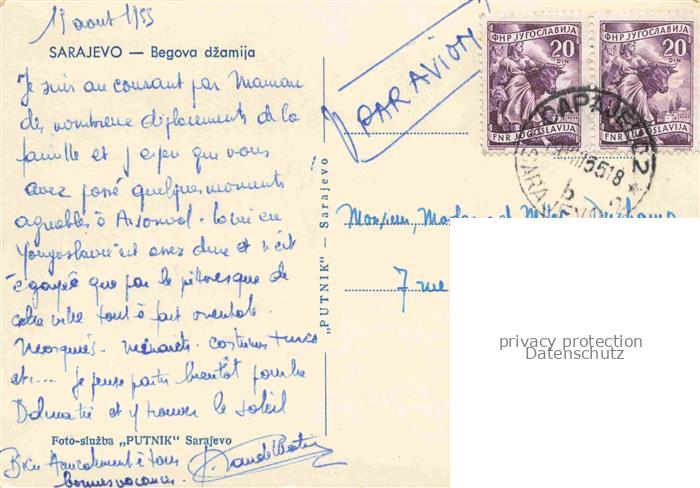 19 aout 1955
SARAJEVO — Begova džamija
Je suis au courant par Maman
des nombreux déplacements de la
famille et j'espère que vous
avez passé quelques moments
agréables à Arsonval. La vie en
Yougoslavie est assez dure et n'est
égayée que par le pittoresque de
cette ville tout à fait orientale.
Mosquées - minarets - costumes turcs
etc.... Je pense partir bientôt pour la
Dalmatie et y trouver le soleil
Foto-služba „PUTNIK" Sarajevo
Bien Amicalement à tous
bonnes vacances.
„PUTNIK" — Sarajevo
PAR AVION
ФНР ЈУГОСЛАВИЈА
20
DIN
FNR JUGOSLAVIJA
ФНР ЈУГОСЛАВИЈА
20
DIN
FNR JUGOSLAVIJA
САРАЈЕВО 2
SARAJEVO 2
Monsieur, Madame et
7 rue
privacy protection
Datenschutz